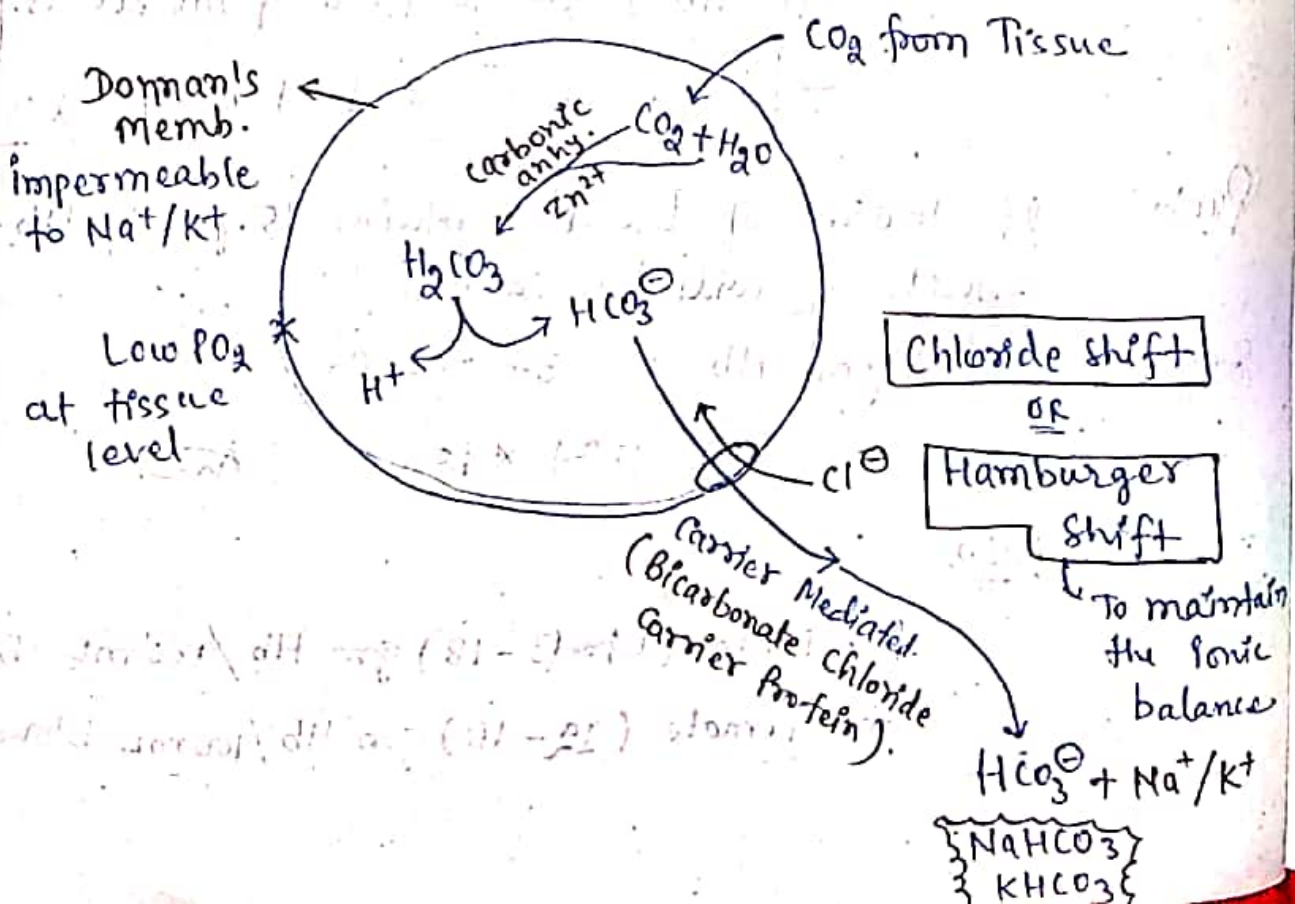 CO2 from Tissue
Donnan's
memb.
impermeable
to Na+/K+.
carbonic
anhy.
Zn2+
CO2 + H2O
H2CO3
H+
HCO3⊖
Low PO2
at tissue
level
Cl⊖
Chloride shift
OR
Hamburger
Shift
To maintain
the Ionic
balance
Carrier Mediated.
(Bicarbonate Chloride
Carrier Protein).
HCO3⊖ + Na+/K+
NaHCO3
KHCO3